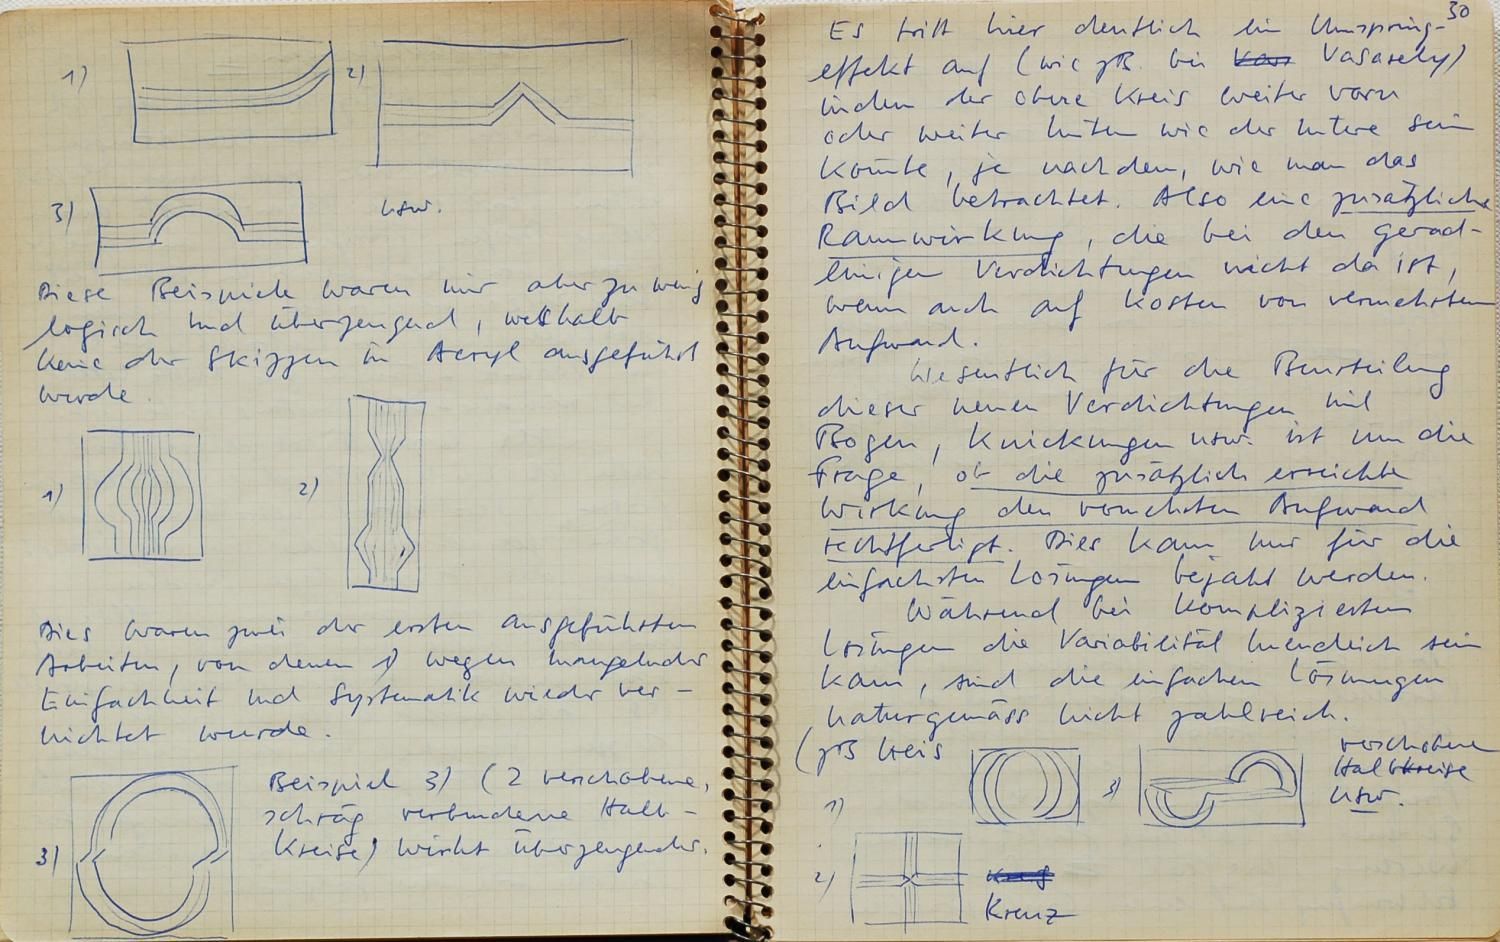 1)
2)
3)
usw.
Diese Beispiele waren mir aber zu wenig
logisch und überzeugend, weshalb
keine der Skizzen in Acryl ausgeführt
wurde.
1)
2)
Dies waren zwei der ersten ausgeführten
Arbeiten, von denen 1) wegen mangelnder
Einfachheit und Systematik wieder ver-
nichtet wurde.
3)
Beispiel 3) (2 verschobene,
schräg verbundene Halb-
kreise) wirkt überzeugender.
30
Es tritt hier deutlich ein Umspring-
effekt auf (wie zB. bei Vasarely)
indem der obere Kreis weiter vorn
oder weiter hinten wie der untere sein
könnte, je nachdem, wie man das
Bild betrachtet. Also eine zusätzliche
Raumwirkung, die bei den gerad-
linigen Verdichtungen nicht da ist,
wenn auch auf Kosten von vermehrtem
Aufwand.
Wesentlich für die Beurteilung
dieser neuen Verdichtungen mit
Bogen, Knickungen usw. ist nun die
Frage, ob die zusätzlich erreichte
Wirkung den vermehrten Aufwand
rechtfertigt. Dies kann nur für die
einfachsten Lösungen bejaht werden.
Während bei komplizierten
Lösungen die Variabilität unendlich sein
kann, sind die einfachen Lösungen
naturgemäss nicht zahlreich.
(zB Kreis
1)
3)
verschobene
Halbkreise
usw.
2)
Kreuz